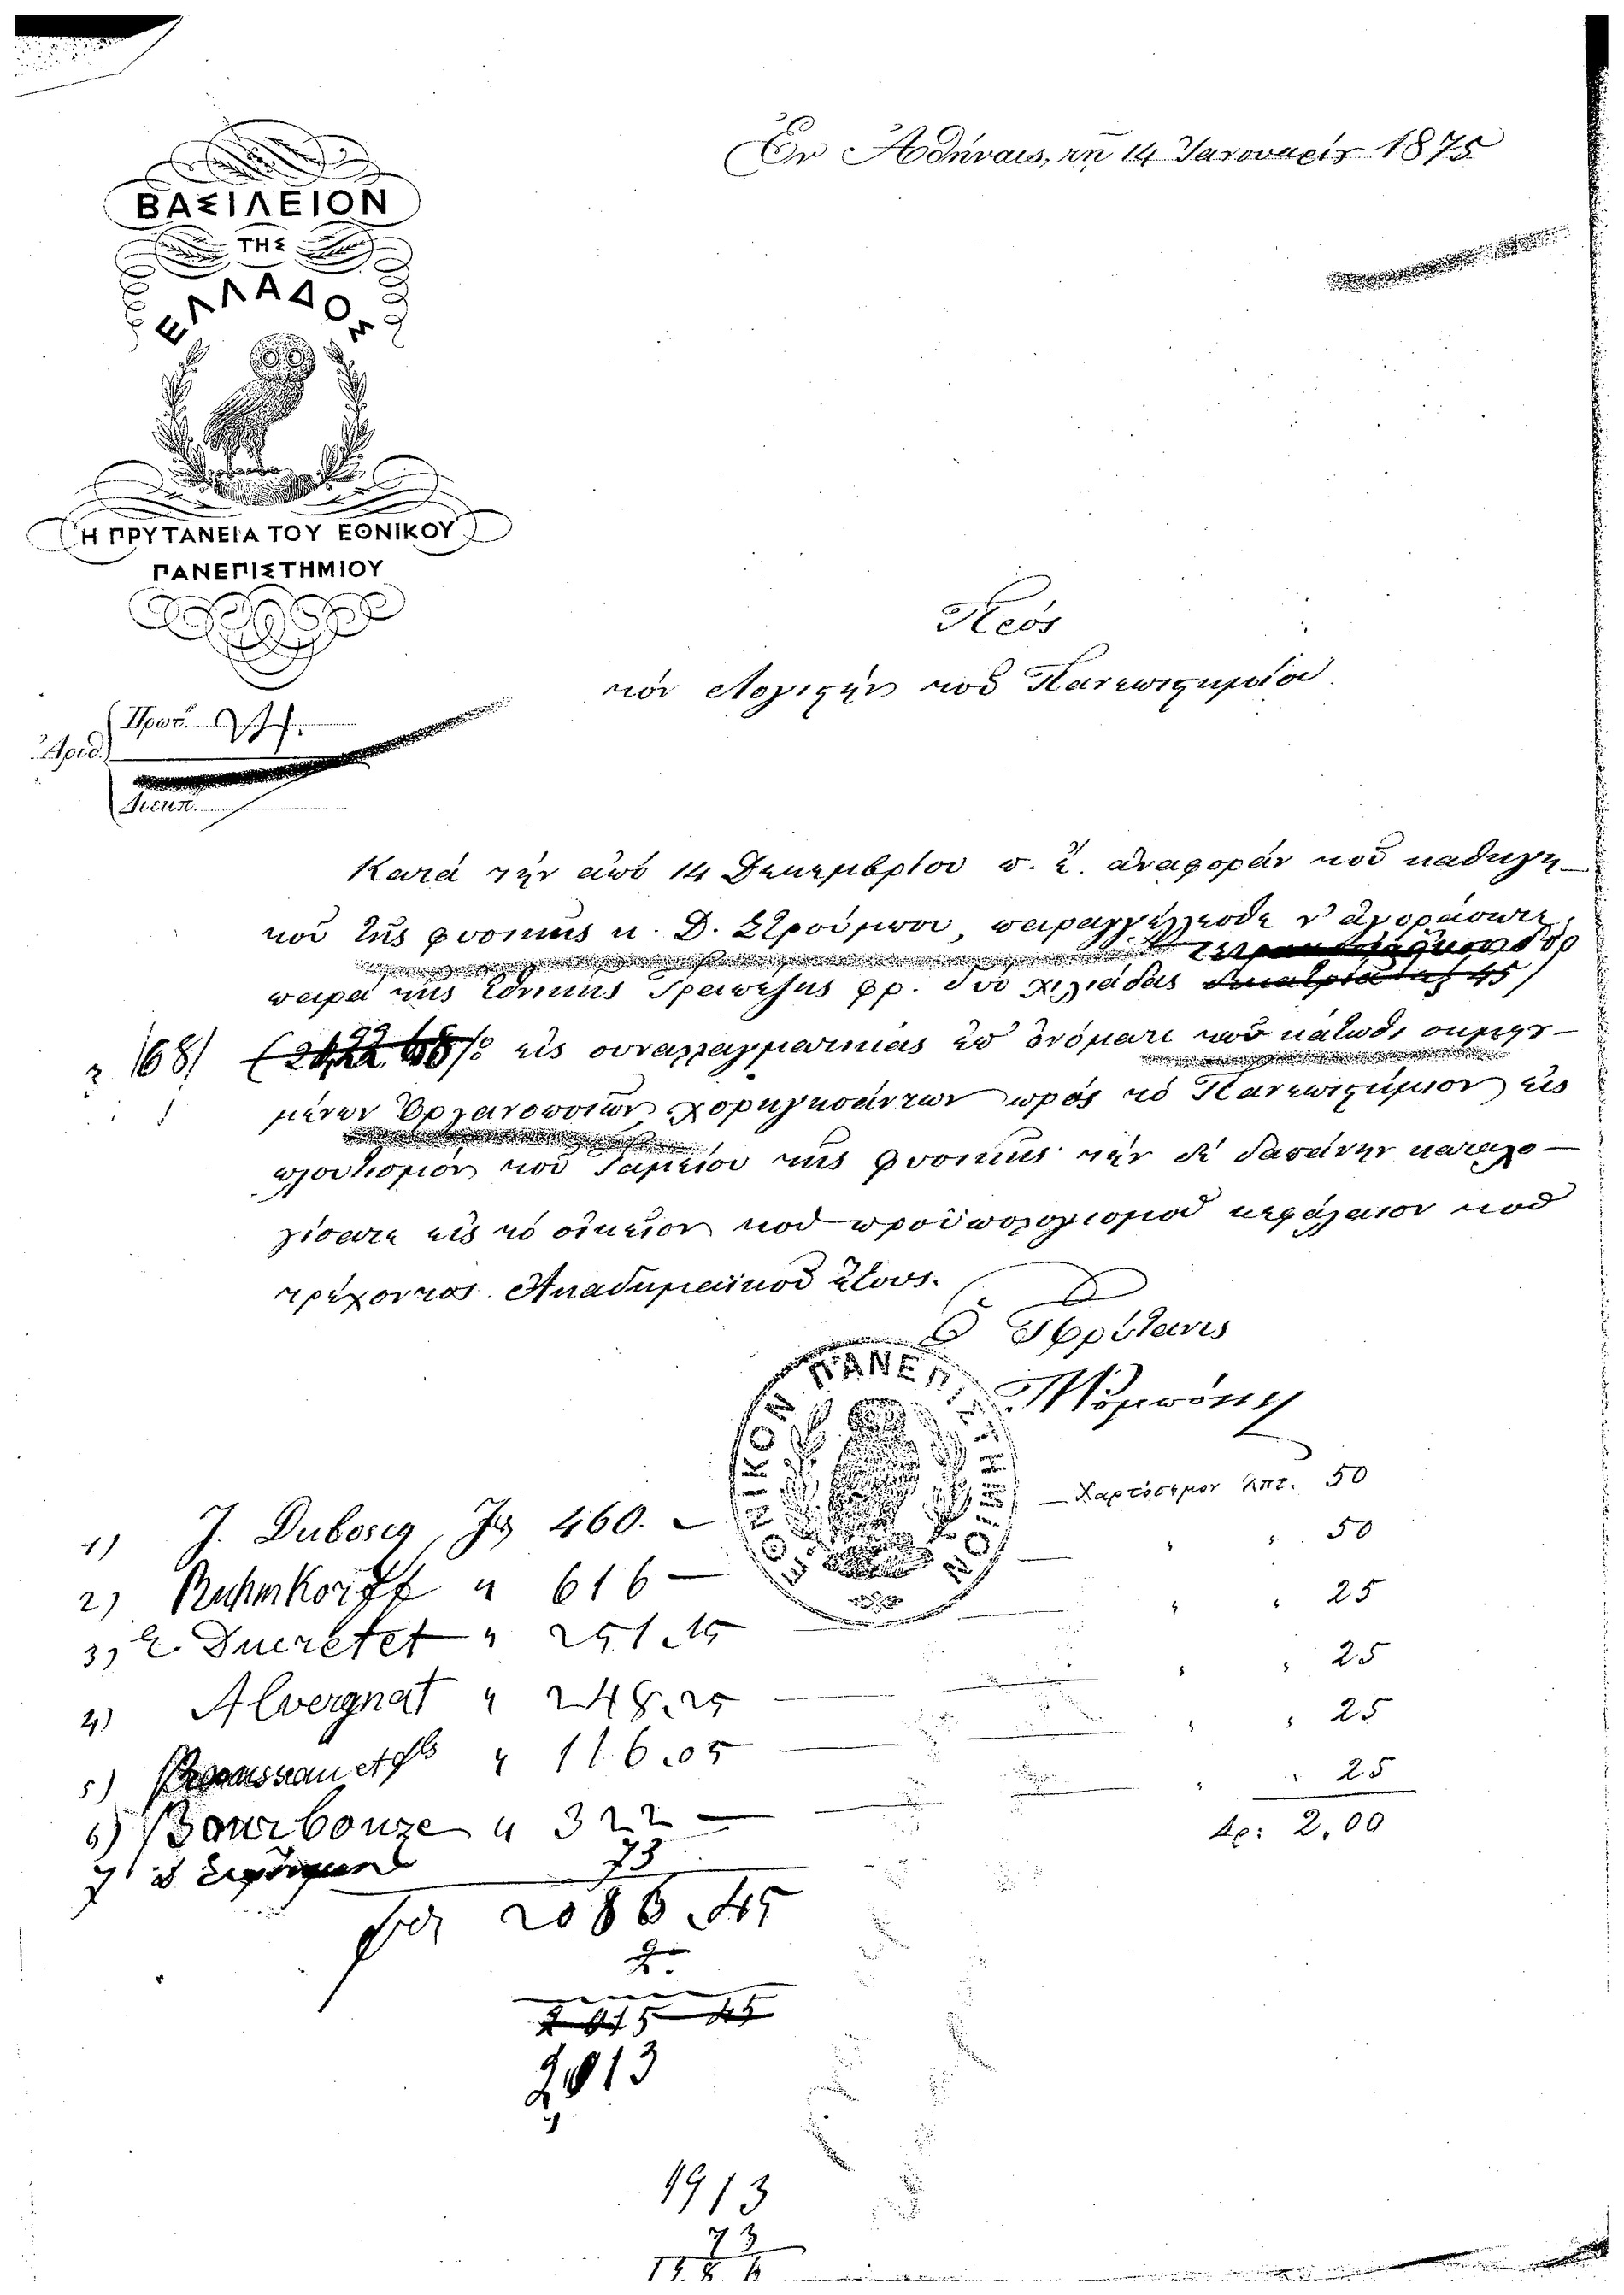 Ἐν Ἀθήναις, τῇ 14 Ἰανουαρίου 1875
ΒΑΣΙΛΕΙΟΝ
ΤΗΣ
ΕΛΛΑΔΟΣ
Η ΠΡΥΤΑΝΕΙΑ ΤΟΥ ΕΘΝΙΚΟΥ
ΠΑΝΕΠΙΣΤΗΜΙΟΥ
Πρὸς
τὸν Λογιστὴν τοῦ Πανεπιστημίου
Πρωτ.
Ἀριθ.
Διεκπ.
Κατὰ τὴν ἀπὸ 14 Δεκεμβρίου π. ἔ. ἀναφορὰν τοῦ καθηγη-
τοῦ τῆς φυσικῆς κ. Δ. Στρούμπου, παραγγέλλεσθε ν' ἀγοράσητε
παρὰ τῆς Ἐθνικῆς Τραπέζης φρ. δύο χιλιάδας
68) εἰς συναλλαγματικὰς ἐπ' ὀνόματι τῶν κάτωθι σημειου-
μένων Ὀργανοποιῶν χορηγησάντων πρὸς τὸ Πανεπιστήμιον εἰς
πλουτισμὸν τοῦ Ταμείου τῆς φυσικῆς τὴν δὲ δαπάνην καταλο-
γίσατε εἰς τὸ οἰκεῖον τοῦ προϋπολογισμοῦ κεφάλαιον τοῦ
τρέχοντος Ἀκαδημαϊκοῦ ἔτους.
Ὁ Πρύτανις
ΕΘΝΙΚΟΝ ΠΑΝΕΠΙΣΤΗΜΙΟΝ
1) J. Duboscq, 460. — Χαρτόσημον λπτ. 50
2) Ruhmkorff " 616 — " " 50
3) E. Ducretet " 251.15 — " " 25
4) Alvergnat " 248.25 — " " 25
5) " 116.05 — " " 25
6) Bourbouze " 322 — " " 25
Δρ: 2,00
7) 73
2086.45
2
2015 45
2013
1913
73